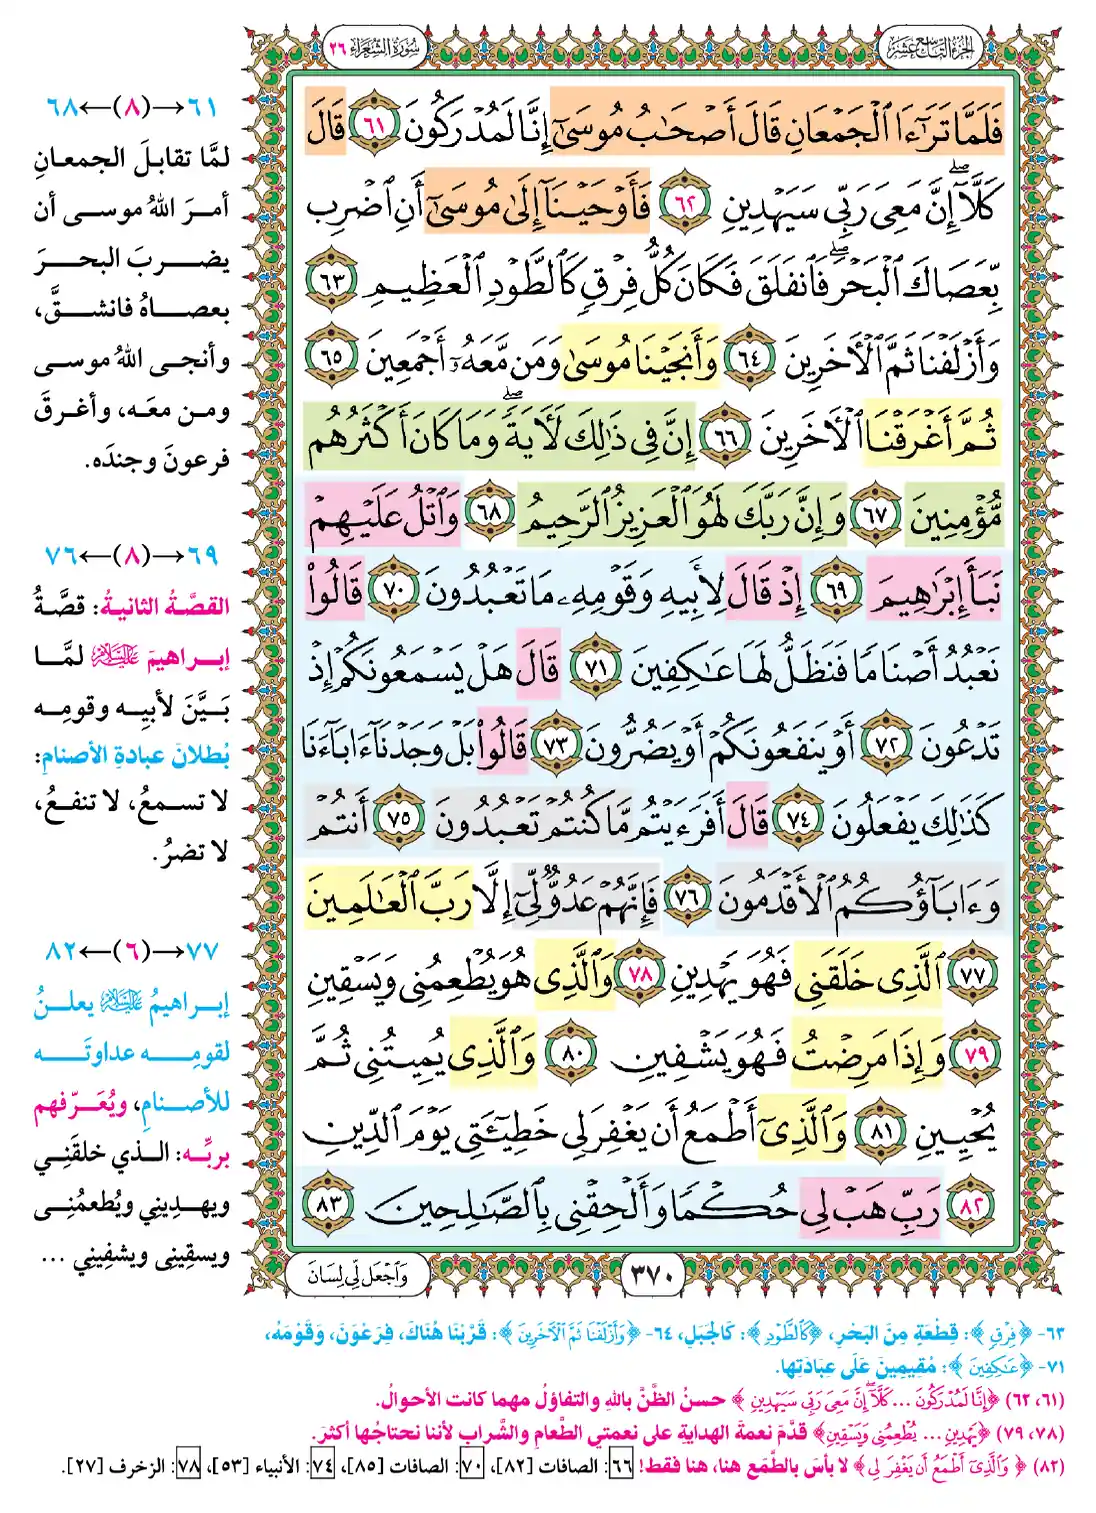 الجزء التاسع عشر
سورة الشعراء ٢٦
فَلَمَّا تَرَٰٓءَا ٱلۡجَمۡعَانِ قَالَ أَصۡحَٰبُ مُوسَىٰٓ إِنَّا لَمُدۡرَكُونَ ٦١ قَالَ
كَلَّآۖ إِنَّ مَعِيَ رَبِّي سَيَهۡدِينِ ٦٢ فَأَوۡحَيۡنَآ إِلَىٰ مُوسَىٰٓ أَنِ ٱضۡرِب
بِّعَصَاكَ ٱلۡبَحۡرَۖ فَٱنفَلَقَ فَكَانَ كُلُّ فِرۡقٖ كَٱلطَّوۡدِ ٱلۡعَظِيمِ ٦٣
وَأَزۡلَفۡنَا ثَمَّ ٱلۡأٓخَرِينَ ٦٤ وَأَنجَيۡنَا مُوسَىٰ وَمَن مَّعَهُۥٓ أَجۡمَعِينَ ٦٥
ثُمَّ أَغۡرَقۡنَا ٱلۡأٓخَرِينَ ٦٦ إِنَّ فِي ذَٰلِكَ لَأٓيَةٗۖ وَمَا كَانَ أَكۡثَرُهُم
مُّؤۡمِنِينَ ٦٧ وَإِنَّ رَبَّكَ لَهُوَ ٱلۡعَزِيزُ ٱلرَّحِيمُ ٦٨ وَٱتۡلُ عَلَيۡهِمۡ
نَبَأَ إِبۡرَٰهِيمَ ٦٩ إِذۡ قَالَ لِأَبِيهِ وَقَوۡمِهِۦ مَا تَعۡبُدُونَ ٧٠ قَالُواْ
نَعۡبُدُ أَصۡنَامٗا فَنَظَلُّ لَهَا عَٰكِفِينَ ٧١ قَالَ هَلۡ يَسۡمَعُونَكُمۡ إِذۡ
تَدۡعُونَ ٧٢ أَوۡ يَنفَعُونَكُمۡ أَوۡ يَضُرُّونَ ٧٣ قَالُواْ بَلۡ وَجَدۡنَآ ءَابَآءَنَا
كَذَٰلِكَ يَفۡعَلُونَ ٧٤ قَالَ أَفَرَءَيۡتُم مَّا كُنتُمۡ تَعۡبُدُونَ ٧٥ أَنتُمۡ
وَءَابَآؤُكُمُ ٱلۡأَقۡدَمُونَ ٧٦ فَإِنَّهُمۡ عَدُوّٞ لِّيٓ إِلَّا رَبَّ ٱلۡعَٰلَمِينَ
٧٧ ٱلَّذِي خَلَقَنِي فَهُوَ يَهۡدِينِ ٧٨ وَٱلَّذِي هُوَ يُطۡعِمُنِي وَيَسۡقِينِ
٧٩ وَإِذَا مَرِضۡتُ فَهُوَ يَشۡفِينِ ٨٠ وَٱلَّذِي يُمِيتُنِي ثُمَّ
يُحۡيِينِ ٨١ وَٱلَّذِيٓ أَطۡمَعُ أَن يَغۡفِرَ لِي خَطِيٓـَٔتِي يَوۡمَ ٱلدِّينِ
٨٢ رَبِّ هَبۡ لِي حُكۡمٗا وَأَلۡحِقۡنِي بِٱلصَّٰلِحِينَ ٨٣
٣٧٠
وَٱجۡعَل لِّي لِسَانَ
٦١→(٨)←٦٨
لمَّا تقابلَ الجمعانِ
أمرَ اللهُ موسى أن
يضربَ البحرَ
بعصاهُ فانشقَّ،
وأنجى اللهُ موسى
ومن معَه، وأغرقَ
فرعونَ وجندَه.
٦٩→(٨)←٧٦
القصَّةُ الثانيةُ: قصَّةُ
إبراهيمَ عليه السلام لمَّا
بَيَّنَ لأبيه وقومِه
بُطلانَ عبادةِ الأصنامِ:
لا تسمعُ، لا تنفعُ،
لا تضرُ.
٧٧→(٦)←٨٢
إبراهيمُ عليه السلام يعلنُ
لقومِه عداوتَه
للأصنامِ، ويُعَرِّفهم
بربِّه: الذي خلقَنِي
ويهدِيني ويُطعمُنِى
ويسقِينِى ويشفِينِي ...
٦٣- ﴿فِرۡقٖ﴾: قِطْعَةٍ مِنَ البَحْرِ، ﴿كَٱلطَّوۡدِ﴾: كَالجَبَلِ، ٦٤- ﴿وَأَزۡلَفۡنَا ثَمَّ ٱلۡأٓخَرِينَ﴾: قَرَّبْنَا هُنَاكَ، فِرْعَوْنَ، وَقَوْمَهُ،
٧١- ﴿عَٰكِفِينَ﴾: مُقِيمِينَ عَلَى عِبَادَتِها.
(٦١، ٦٢) ﴿إِنَّا لَمُدۡرَكُونَ ... كَلَّآۖ إِنَّ مَعِيَ رَبِّي سَيَهۡدِينِ﴾ حسنُ الظَّنِّ باللهِ والتفاؤلُ مهما كانت الأحوالُ.
(٧٨، ٧٩) ﴿يَهۡدِينِ ... يُطۡعِمُنِي وَيَسۡقِينِ﴾ قدَّمَ نعمةَ الهدايةِ على نعمتي الطَّعامِ والشَّرابِ لأننا نحتاجُها أكثرَ.
(٨٢) ﴿وَٱلَّذِيٓ أَطۡمَعُ أَن يَغۡفِرَ لِي﴾ لا بأسَ بالطَّمَعِ هنا، هنا فقط! ٦٦: الصافات [٨٢]، ٧٠: الصافات [٨٥]، ٧٤: الأنبياء [٥٣]، ٧٨: الزخرف [٢٧].